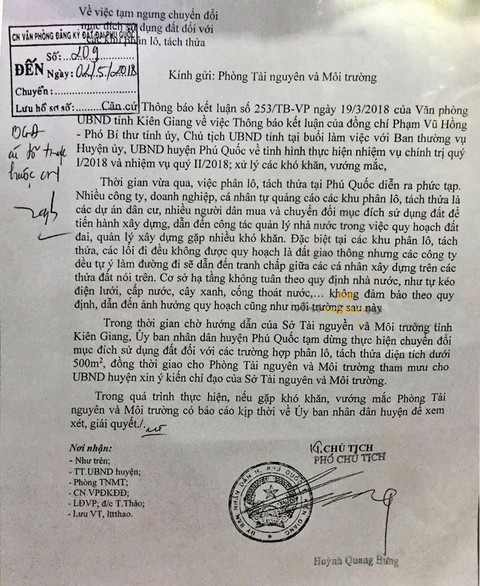 Về việc tạm ngưng chuyển đổi
mục đích sử dụng đất đối với
các khu phân lô, tách thửa
CN VĂN PHÒNG ĐĂNG KÝ ĐẤT ĐAI PHÚ QUỐC
ĐẾN
Số: 209
Ngày: 02/5/2018
Chuyển:
Lưu hồ sơ số:
Kính gửi: Phòng Tài nguyên và Môi trường
Căn cứ Thông báo kết luận số 253/TB-VP ngày 19/3/2018 của Văn phòng
UBND tỉnh Kiên Giang về việc Thông báo kết luận của đồng chí Phạm Vũ Hồng
- Phó Bí thư tỉnh ủy, Chủ tịch UBND tỉnh tại buổi làm việc với Ban thường vụ
Huyện ủy, UBND huyện Phú Quốc về tình hình thực hiện nhiệm vụ chính trị quý
I/2018 và nhiệm vụ quý II/2018; xử lý các khó khăn, vướng mắc,
Thời gian vừa qua, việc phân lô, tách thửa tại Phú Quốc diễn ra phức tạp.
Nhiều công ty, doanh nghiệp, cá nhân tự quảng cáo các khu phân lô, tách thửa là
các dự án dân cư, nhiều người dân mua và chuyển đổi mục đích sử dụng đất để
tiến hành xây dựng, dẫn đến công tác quản lý nhà nước trong việc quy hoạch đất
đai, quản lý xây dựng gặp nhiều khó khăn. Đặc biệt tại các khu phân lô, tách
thửa, các lối đi đều không được quy hoạch là đất giao thông nhưng các công ty
đều tự ý làm đường đi sẽ dẫn đến tranh chấp giữa các cá nhân xây dựng trên các
thửa đất nói trên. Cơ sở hạ tầng không tuân theo quy định nhà nước, như tự kéo
điện lưới, cấp nước, cây xanh, cống thoát nước,... không đảm bảo theo quy
định, dẫn đến ảnh hưởng quy hoạch cũng như môi trường sau này
Trong thời gian chờ hướng dẫn của Sở Tài nguyên và Môi trường tỉnh
Kiên Giang, Ủy ban nhân dân huyện Phú Quốc tạm dừng thực hiện chuyển đổi
mục đích sử dụng đất đối với các trường hợp phân lô, tách thửa diện tích dưới
500m², đồng thời giao cho Phòng Tài nguyên và Môi trường tham mưu cho
UBND huyện xin ý kiến chỉ đạo của Sở Tài nguyên và Môi trường.
Trong quá trình thực hiện, nếu gặp khó khăn, vướng mắc Phòng Tài
nguyên và Môi trường có báo cáo kịp thời về Ủy ban nhân dân huyện để xem
xét, giải quyết./.
Nơi nhận:
- Như trên;
- TT.UBND huyện;
- Phòng TNMT;
- CN.VPĐKĐĐ;
- LĐVP; đ/c T.Thảo;
- Lưu VT, lttthao.
KT. CHỦ TỊCH
PHÓ CHỦ TỊCH
Huỳnh Quang Hưng